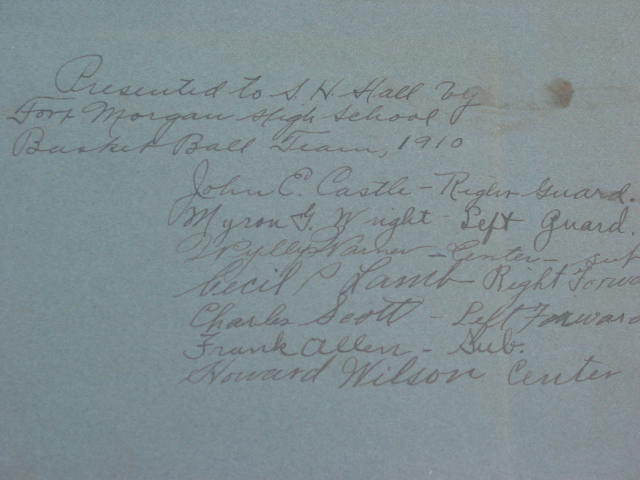 Presented to S. H. Hall by
Fort Morgan High School
Basket Ball Team, 1910
John C. Castle - Right Guard.
Myron G. Wright - Left Guard.
Warner - Center - sub
Cecil P Lamb Right Forwa
Charles Scott - Left Forward
Frank Allen - Sub.
Howard Wilson Center